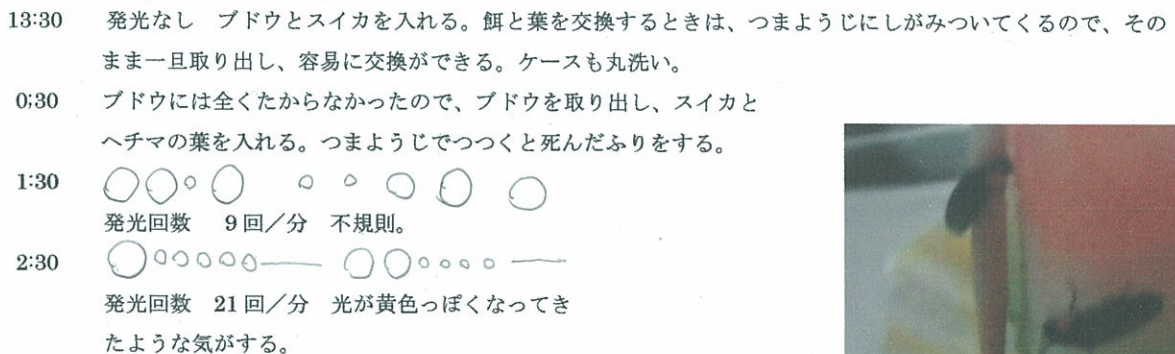 13:30 発光なし ブドウとスイカを入れる。餌と葉を交換するときは、つまようじにしがみついてくるので、その
まま一旦取り出し、容易に交換ができる。ケースも丸洗い。
0;30 ブドウには全くたからなかったので、ブドウを取り出し、スイカと
ヘチマの葉を入れる。つまようじでつつくと死んだふりをする。
1:30
発光回数 9回／分 不規則。
2:30
発光回数 21回／分 光が黄色っぽくなってき
たような気がする。